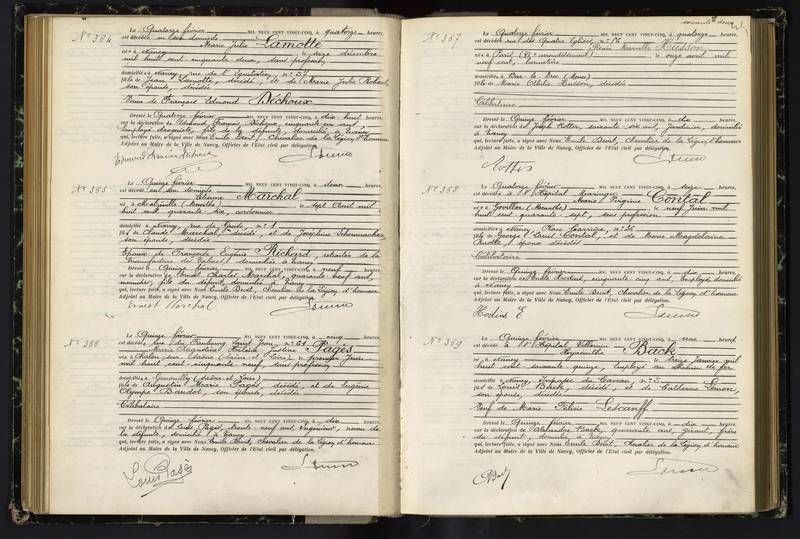 N° 384
Le Quatorze février MIL NEUF CENT VINGT-CINQ, à quatorze heures,
est décédée en son domicile
Marie Julie Lamotte
née à Nancy le seize décembre
mil huit cent cinquante deux, sans profession
domiciliée à Nancy, rue de l'Equitation, n° 57
fille de Jean Lamotte, décédé, et de Marie Julie Robert,
son épouse, décédée
Veuve de François Edmond Déchoux
Dressé le Quatorze février MIL NEUF CENT VINGT-CINQ, à dix huit heures,
sur la déclaration de Edmond François Déchoux, cinquante un ans,
Employé droguiste, fils de la défunte, domicilié à Nancy
qui, lecture faite, a signé avec Nous Emile Benit, Chevalier de la Légion d'honneur
Adjoint au Maire de la Ville de Nancy, Officier de l'État civil par délégation.
N° 385
Le Quinze février MIL NEUF CENT VINGT-CINQ, à deux heures,
est décédé en son domicile
Etienne Marchal
né à (Meurthe) le sept Avril mil
huit cent quarante six, cordonnier
domicilié à Nancy, rue de n° 1
fils de Claude Marchal, décédé, et de Joséphine Schoumacher
son épouse, décédée
Epoux de Françoise Eugénie Richard, retraitée de la
Manufacture de tabacs, domiciliée à Nancy
Dressé le Quinze février MIL NEUF CENT VINGT-CINQ, à neuf heures,
sur la déclaration de Ernest Charles Marchal, quarante neuf ans,
menuisier, fils du défunt, domicilié à Nancy
qui, lecture faite, a signé avec Nous Emile Benit, Chevalier de la Légion d'honneur
Adjoint au Maire de la Ville de Nancy, Officier de l'État civil par délégation.
Ernest Marchal
N° 386
Le Quinze février MIL NEUF CENT VINGT-CINQ, à cinq heures,
est décédée, rue du Faubourg Saint Jean, n° 21
Marie Augustine Héloïse Justine Pagès
née à Chalon sur Saône (Saône et Loire) le premier Juin
mil huit cent cinquante neuf, sans profession
domiciliée à (Saône et Loire)
fille de Augustin Marie Pagès, décédé, et de Eugénie
Olympe Baudot, son épouse, décédée
Célibataire
Dressé le Quinze février MIL NEUF CENT VINGT-CINQ, à dix heures,
sur la déclaration de Louis Pagès, trente neuf ans, neveu de
la défunte, domicilié à Nancy
qui, lecture faite, a signé avec Nous Emile Benit, Chevalier de la Légion d'honneur
Adjoint au Maire de la Ville de Nancy, Officier de l'État civil par délégation.
Louis Pagès
N° 387
Le Quatorze février MIL NEUF CENT VINGT-CINQ, à quatorze heures,
est décédée rue des Quatre Eglises, n°
Renée Marcelle Husson
née à Paris arrondissement) le onze avril mil
neuf cent,
domiciliée à Bar le Duc (Meuse)
fille de Marie Husson, décédée
Célibataire
Dressé le Quinze février MIL NEUF CENT VINGT-CINQ, à dix heures,
sur la déclaration de Joseph Rottes, soixante six ans, Jardinier, domicilié
à Nancy
qui, lecture faite, a signé avec Nous Emile Benit, Chevalier de la Légion d'honneur
Adjoint au Maire de la Ville de Nancy, Officier de l'État civil par délégation.
Rottes
N° 388
Le Quatorze février MIL NEUF CENT VINGT-CINQ, à seize heures,
est décédée à l'Hôpital Maringer
Marie Virginie Contal
née à Goviller (Meurthe) le neuf Juin mil
huit cent quarante sept, sans profession
domiciliée à Nancy, Place Carrière, n° 35
fille de George Louis Contal, et de Marie Magdeleine
Ruotte, époux décédés
Célibataire
Dressé le Quinze février MIL NEUF CENT VINGT-CINQ, à dix heures,
sur la déclaration de Emile Hodius, cinquante cinq ans, Employé, domicilié
à Nancy
qui, lecture faite, a signé avec Nous Emile Benit, Chevalier de la Légion d'honneur
Adjoint au Maire de la Ville de Nancy, Officier de l'État civil par délégation.
Hodius E
N° 389
Le Quinze février MIL NEUF CENT VINGT-CINQ, à heures,
est décédé à l'Hôpital Villemin
Hyacinthe Back
né à Nancy le treize Janvier mil
huit cent soixante quinze, Employé au chemin de fer
domicilié à Nancy, Impasse du Caveau n° 3
fils de Louis Back, décédé, et de Catherine Simon,
son épouse, décédée
Veuf de Marie Félicie Lescanff
Dressé le Quinze février MIL NEUF CENT VINGT-CINQ, à dix heures,
sur la déclaration de Alexandre Back, quarante ans, gérant, frère
du défunt, domicilié à Nancy
qui, lecture faite, a signé avec Nous Emile Benit, Chevalier de la Légion d'honneur
Adjoint au Maire de la Ville de Nancy, Officier de l'État civil par délégation.
Back